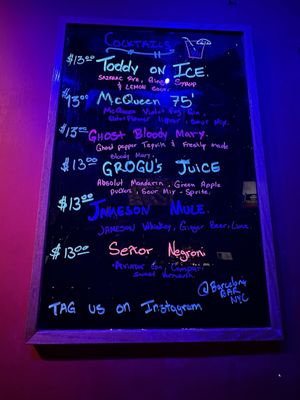 COCKTAILS
$13.00 Toddy on Ice.
SAZERAC RYE, Ginger Syrup
& LEMON
$13.00 McQueen 75'
McQueen Violet Fog Gin,
Elderflower liquor, Sour Mix.
$13.00 Ghost Bloody Mary.
Ghost pepper Tequila & freshly made
Bloody Mary.
$13.00 GROGU'S JUICE
Absolut Mandarin, Green Apple
puckers, Sour Mix - Sprite.
$13.00 Jameson Mule.
JAMESON Whiskey, Ginger Beer, Lime
$13.00 Señor Negroni
Aviation Gin, Campari
Sweet Vermouth
TAG US ON Instagram
@Barcelona
BAR
NYC